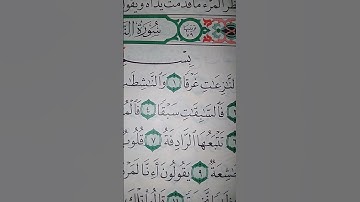 ظر المرء ما قدمت يداه ويقو
سورة الن
بسم
النازعات غرقا ١ والناشطا
فالسابقات سبقا ٤ فالم
تتبعها الرادفة ٧ قلوب
شعة ٩ يقولون أءنا لمر
قالوا تلك